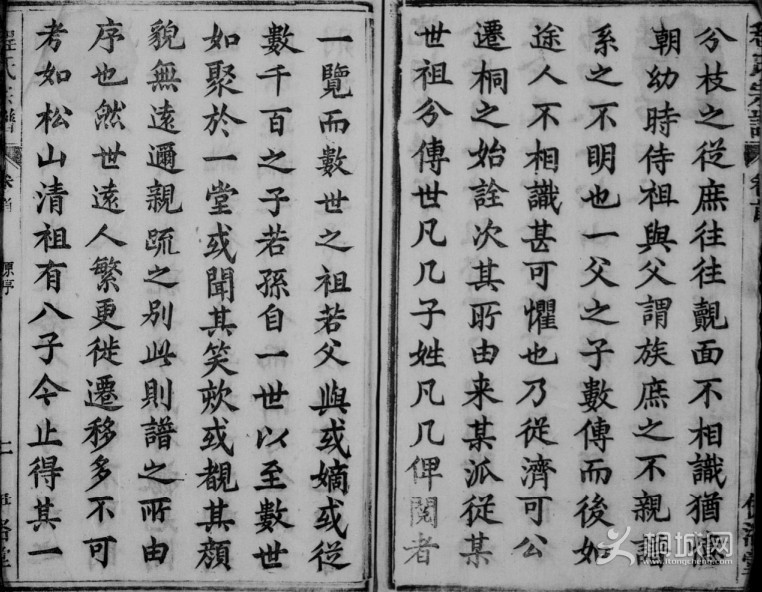 氏宗譜 卷首
分枝之從庶往往覿面不相識猶
朝幼時侍祖與父謂族庶之不親譜
系之不明也一父之子數傳而後如
途人不相識甚可懼也乃從濟可公
遷桐之始詮次其所由来某派從某
世祖分傳世凡几子姓凡几俾閱者
一覽而數世之祖若父與或嫡或從
數千百之子若孫自一世以至數世
如聚於一堂或聞其笑欬或覩其顏
貌無遠邇親疏之别此則譜之所由
序也然世遠人繁更徙遷移多不可
考如松山清祖有八子今止得其一
程氏宗譜 卷首 原序 二 洛堂
桐城网
www.itongcheng.com